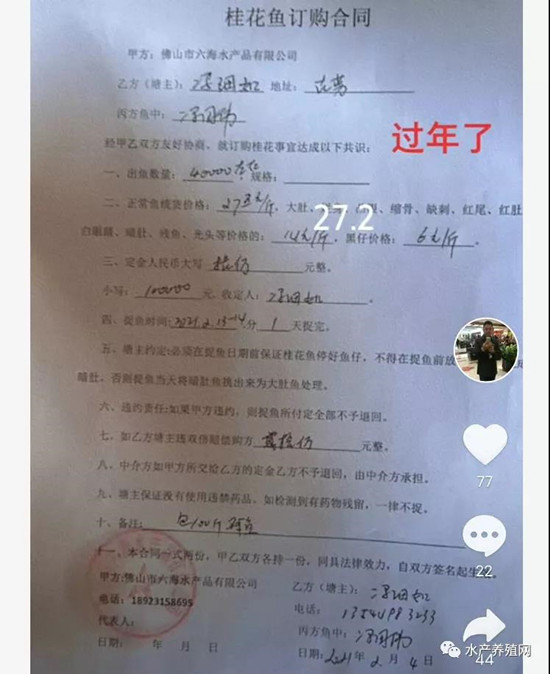 桂花鱼订购合同
甲方：佛山市六海水产品有限公司
乙方（塘主）： 地址：
丙方鱼中：
过年了
经甲乙双方友好协商、就订购桂花事宜达成以下共识：
一、出鱼数量：40000 规格：
二、正常鱼统货价格：27.2元/斤，大肚、 缩骨、缺刺、红尾、红肚
27.2
白眼睛、暗肚、线鱼、光头等价格的：14元/斤，黑仔价格：6元/斤。
三、定金人民币大写 拾万 元整。
小写：100000 元，收定人： 。
四、捉鱼时间：2021.2.13-14，分 1 天捉完。
五、塘主约定：必须在捉鱼日期前保证桂花鱼停好鱼仔，不得在捉鱼前放
暗肚，否则捉鱼当天将暗肚鱼挑出来为大肚鱼处理。
六、违约责任：如果甲方违约，则捉鱼所付定全部不予退回。
七、如乙方塘主违双倍赔偿购方 贰拾万 元整。
八、中介方如甲方所交给乙方的定金乙方不予退回，由中介方承担。
九、塘主保证没有使用违禁药品，如检测到有药物残留，一律不捉。
十、备注： 包100斤
十一、本合同一式两份，甲乙双方各持一份，同具法律效力，自双方签名起生
甲方：佛山市六海水产品有限公司
电话：18923158695
代表人：
日期： 年 月 日
乙方（塘主）：
电话：
丙方鱼中：
日期：2021年2月4日
77
22
44
水产养殖网